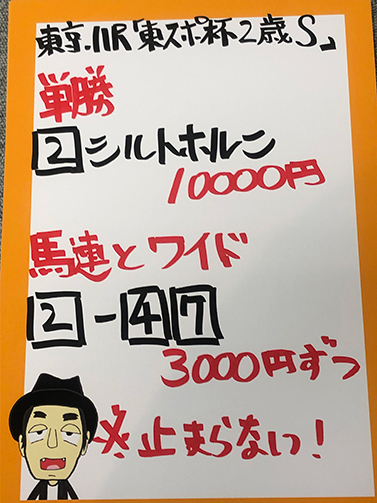 東京.11R「東スポ杯2歳S」
単勝
2シルトホルン
10000円
馬連とワイド
2-47
3000円ずつ
止まらない!